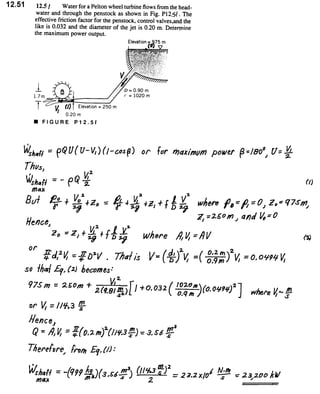 12.51
12.5 l Water for a Pelton wheel turbine flows from the head-
water and through the penstock as shown in Fig. P12.5l. The
effective friction factor for the penstock, control valves, and the
like is 0.032 and the diameter of the jet is 0.20 m. Determine
the maximum power output.
Elevation = 975 m
(0)
V
D = 0.90 m
ℓ = 1020 m
1.7 m
V₁ (1) Elevation = 250 m
0.20 m
■ FIGURE P12.5l
Ẇshaft = ρQU(U-V₁)(1-cosβ) or for maximum power β=180°, U=V₁/2
Thus,
Ẇshaft max = -ρQ V₁²/2 (1)
But P₀/γ + V₀²/2g + Z₀ = P₁/γ + V₁²/2g + Z₁ + f ℓ/D V²/2g where P₀=P₁=0, Z₀=975m,
Z₁=250m, and V₀=0
Hence,
Z₀ = Z₁ + V₁²/2g + f ℓ/D V²/2g where A₁V₁=AV (2)
or
π/4 d₁²V₁ = π/4 D²V. That is V=(d₁/D)²V₁ =(0.2m/0.9m)²V₁ = 0.0494V₁
so that Eq.(2) becomes:
975m = 250m + V₁²/2(9.81 m/s²)[1+0.032(1020m/0.9m)(0.0494)²] where V₁~m/s
or V₁ = 114.3 m/s
Hence,
Q = A₁V₁ = π/4(0.2m)²(114.3 m/s)= 3.56 m³/s
Therefore, from Eq.(1):
Ẇshaft max = -(999 kg/m³)(3.56 m³/s) (114.3 m/s)²/2 = 23.2x10⁶ N·m/s = 23,200 kW